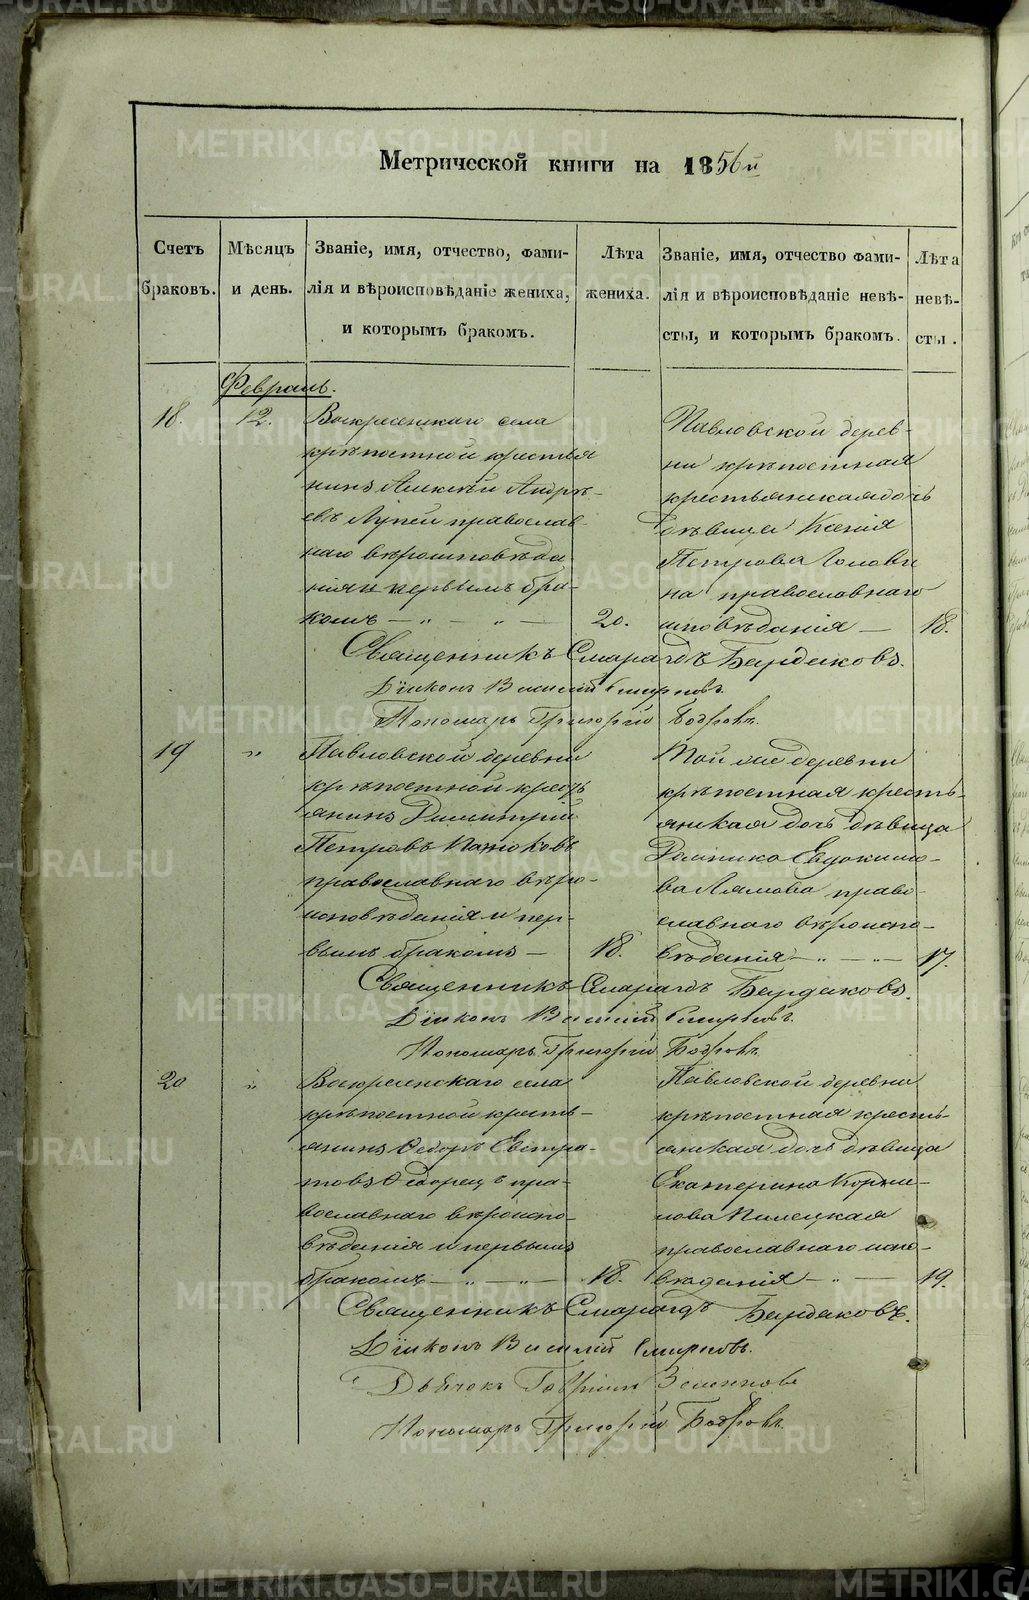 METRIKI.GASO-URAL.RU
Метрической книги на 1856й
Счетъ браковъ.
Мѣсяцъ и день.
Званіе, имя, отчество, фами-
лія и вѣроисповѣданіе жениха,
и которымъ бракомъ.
Лѣта жениха.
Званіе, имя, отчество фами-
лія и вѣроисповѣданіе невѣ-
сты, и которымъ бракомъ.
Лѣта невѣ-
сты.
Февраль.
18.
12.
Воскресенскаго села
крѣпостной крестья
нинъ Алексѣй Андрѣ-
евъ православ-
наго вѣроисповѣда
нія и первымъ бра-
комъ — „ — „ —
20.
Павловской дерев-
ни крѣпостная
крестьянская дочь
дѣвица Ксенія
Петрова Голови
на православнаго
исповѣданія —
18.
Священникъ Смарагдъ Бардаковъ.
Дїаконъ Василій Смирновъ.
Пономарь Григорій Бобровъ.
19
„
Павловской деревни
крѣпостной крест
янинъ Димитрій
Петровъ
православнаго вѣро-
исповѣданія и пер-
вымъ бракомъ —
18.
Той же деревни
крѣпостная кресть-
янская дочь дѣвица
Домника Евдокимо-
ва Лямова право-
славнаго вѣроиспо-
вѣданія — „ — „ —
17.
Священникъ Смарагдъ Бардаковъ.
Дїаконъ Василій Смирновъ.
Пономарь Григорій Бобровъ.
20
„
Воскресенскаго села
крѣпостной кресть-
янинъ Ѳедоръ Евстра-
товъ пра-
вославнаго вѣроиспо-
вѣданія и первымъ
бракомъ — „ — „ —
18.
Павловской деревни
крѣпостная кресть-
янская дочь дѣвица
Екатерина Корни-
лова Пилецкая
православнаго испо-
вѣданія — „ —
19.
Священникъ Смарагдъ Бардаковъ.
Дїаконъ Василій Смирновъ.
Дьячокъ Гавріилъ
Пономарь Григорій Бобровъ.